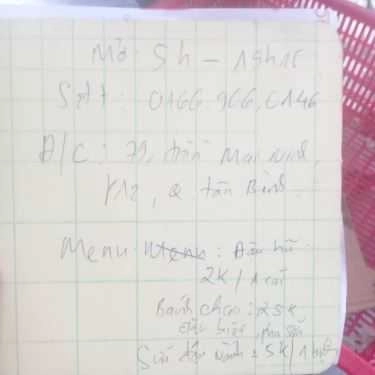 Mở: 5h - 19h15
Sđt: 0166.966.0146
Đ/C: 79, trần Mai Ninh,
P12, Q tân Bình.
Menu: Đậu hũ
2K/1 cái
Bánh chay: 25K
đặc biệt
Sữa đậu nành: 5K/1